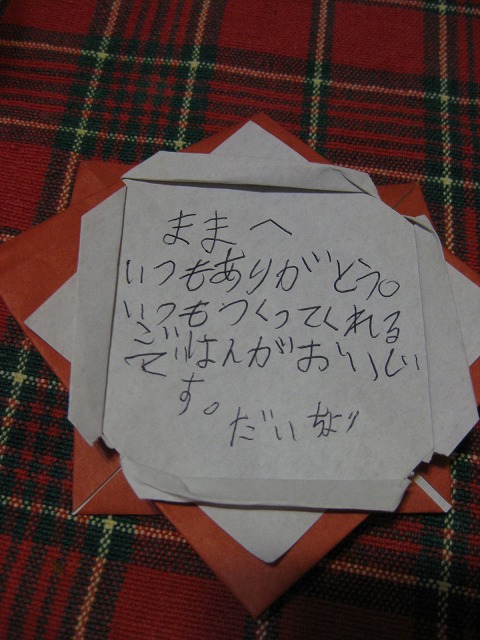 ままへ
いつもありがとう。
いつもつくってくれる
ごはんがおいしい
す。
だいちより